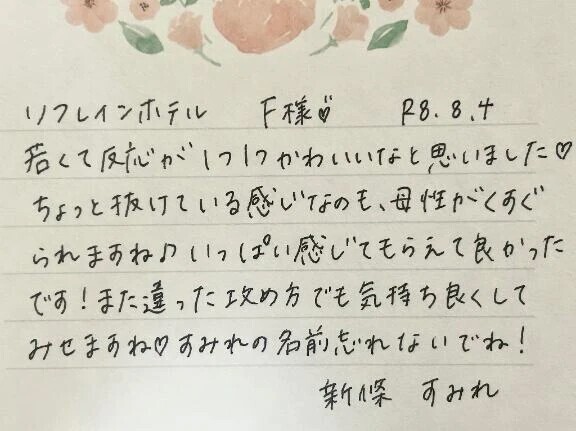 リフレインホテル F様♡ R8.8.4
若くて反応が1つ1つかわいいなと思いました♡
ちょっと抜けている感じなのも、母性がくすぐ
られますね♪いっぱい感じてもらえて良かった
です！また違った攻め方でも気持ち良くして
みせますね♡すみれの名前忘れないでね！
新條 すみれ